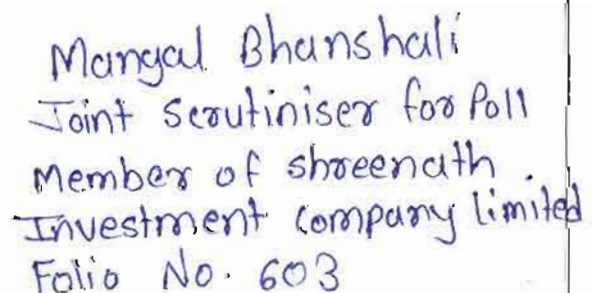 Mangal Bhanshali
Joint Scrutiniser for Poll
Member of shreenath.
Investment company limited
Folio No. 603